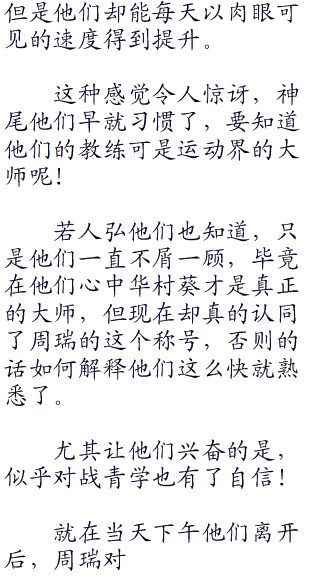 但是他们却能每天以肉眼可
见的速度得到提升。
这种感觉令人惊讶，神
尾他们早就习惯了，要知道
他们的教练可是运动界的大
师呢！
若人弘他们也知道，只
是他们一直不屑一顾，毕竟
在他们心中华村葵才是真正
的大师，但现在却真的认同
了周瑞的这个称号，否则的
话如何解释他们这么快就熟
悉了。
尤其让他们兴奋的是，
似乎对战青学也有了自信！
就在当天下午他们离开
后，周瑞对